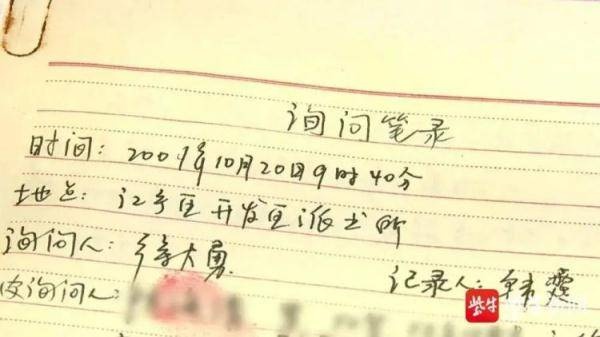 询问笔录
时间：2001年10月20日9时40分
地点：江宁区开发区派出所
询问人：徐大勇 记录人：韩
被询问人：
紫牛